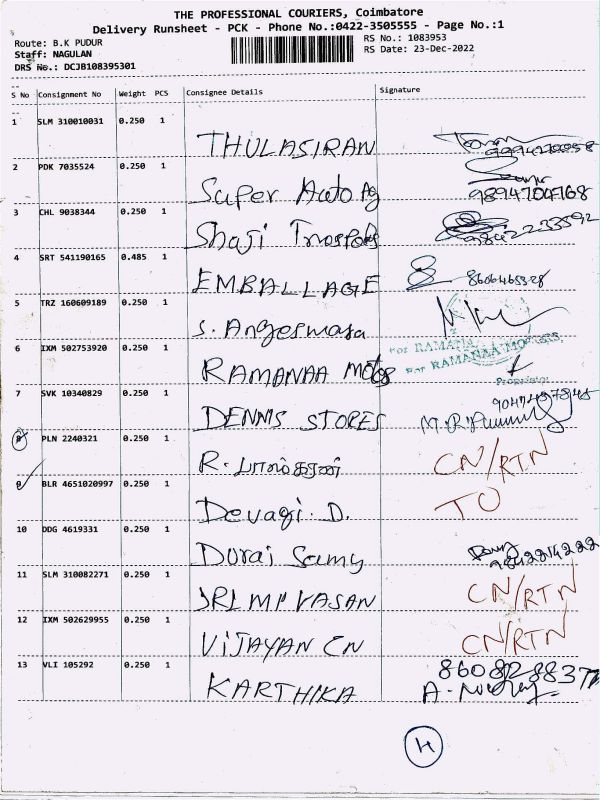 THE PROFESSIONAL COURIERS, Coimbatore
Delivery Runsheet - PCK - Phone No.:0422-3505555 - Page No.:1
Route: B.K PUDUR RS No.: 1083953
Staff: NAGULAN RS Date: 23-Dec-2022
DRS No.: DCJB108395301
S No Consignment No Weight PCS Consignee Details Signature
1 SLM 310010031 0.250 1
THULASIRAN
2 PDK 7035524 0.250 1
Super Auto Ag 9894704768
3 CHL 9038344 0.250 1
Shaji 9842233592
4 SRT 541190165 0.485 1
EMBALLAGE
5 TRZ 160609189 0.250 1
S.
For RAMANAA MOTORS,
6 IXM 502753920 0.250 1
RAMANAA Motos Proprietor
7 SVK 10340829 0.250 1
DENNIS STORES
8 PLN 2240321 0.250 1
R. CN/RTN
9 BLR 4651020997 0.250 1
Devagi. D. TO
10 DDG 4619331 0.250 1
Durai Samy 9842214222
11 SLM 310082271 0.250 1
VASAN CN/RTN
12 IXM 502629955 0.250 1
VIJAYAN CN CN/RTN
13 VLI 105292 0.250 1
KARTHIKA
4